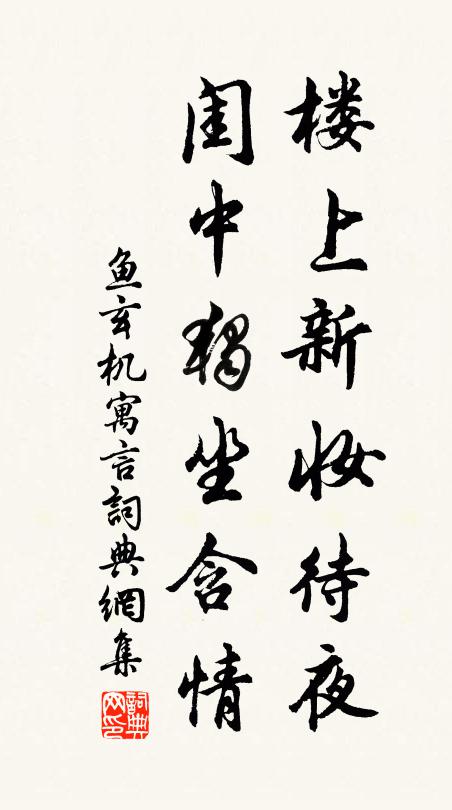 楼上新妆待夜
闺中独坐含情
鱼玄机寓言詞典網集
詞典网印